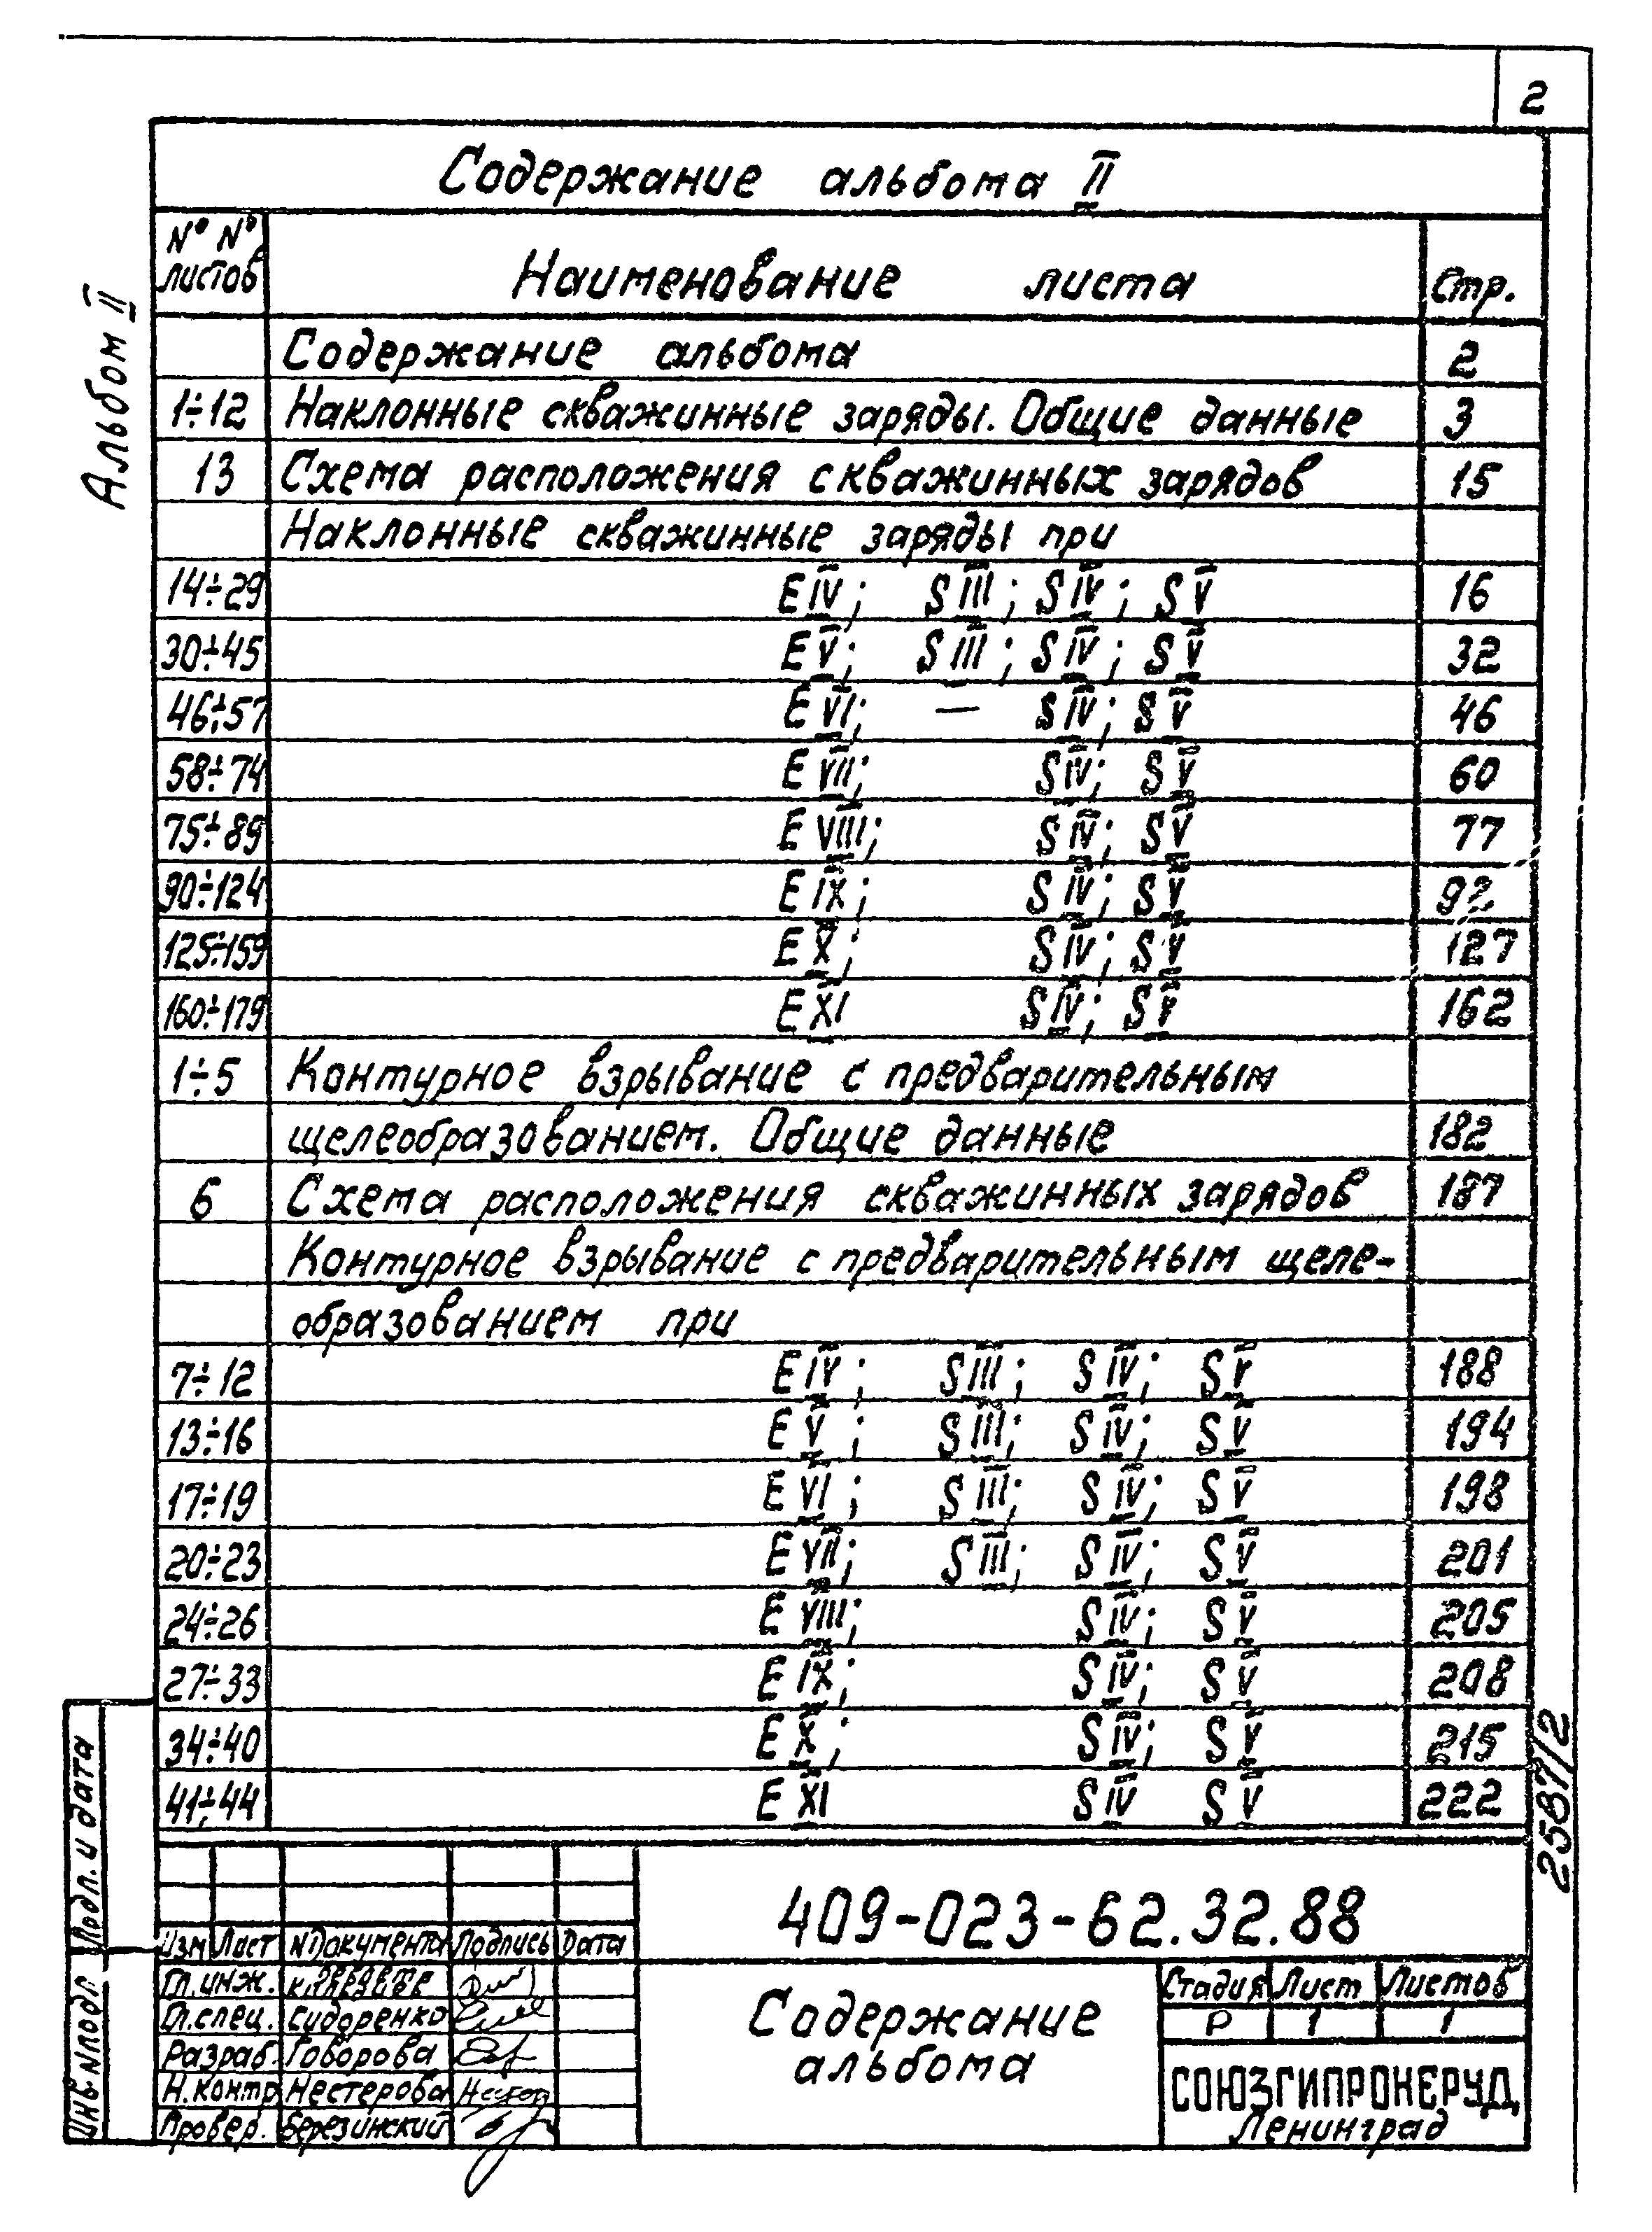 2
Содержание альбома II
№ № листов Наименование листа Стр.
Альбом II
Содержание альбома 2
1÷12 Наклонные скважинные заряды. Общие данные 3
13 Схема расположения скважинных зарядов 15
Наклонные скважинные заряды при
14÷29 E IV; S III; S IV; S V 16
30÷45 E V; S III; S IV; S V 32
46÷57 E VI; — S IV; S V 46
58÷74 E VII; S IV; S V 60
75÷89 E VIII; S IV; S V 77
90÷124 E IX; S IV; S V 92
125÷159 E X; S IV; S V 127
160÷179 E XI S IV; S V 162
1÷5 Контурное взрывание с предварительным
щелеобразованием. Общие данные 182
6 Схема расположения скважинных зарядов 187
Контурное взрывание с предварительным щеле-
образованием при
7÷12 E IV; S III; S IV; S V 188
13÷16 E V; S III; S IV; S V 194
17÷19 E VI; S III; S IV; S V 198
20÷23 E VII; S III; S IV; S V 201
24÷26 E VIII; S IV; S V 205
27÷33 E IX; S IV; S V 208
34÷40 E X; S IV; S V 215
41÷44 E XI S IV S V 222
2587/2
Подп. и дата
Инв. N подл
409-023-62.32.88
Изм Лист N Документа Подпись Дата
Гл. инж.
Гл. спец. Сидоренко
Разраб. Говорова
Н. контр Нестерова
Провер. Березинский
Содержание
альбома
Стадия Лист Листов
Р 1 1
СОЮЗГИПРОНЕРУД
Ленинград